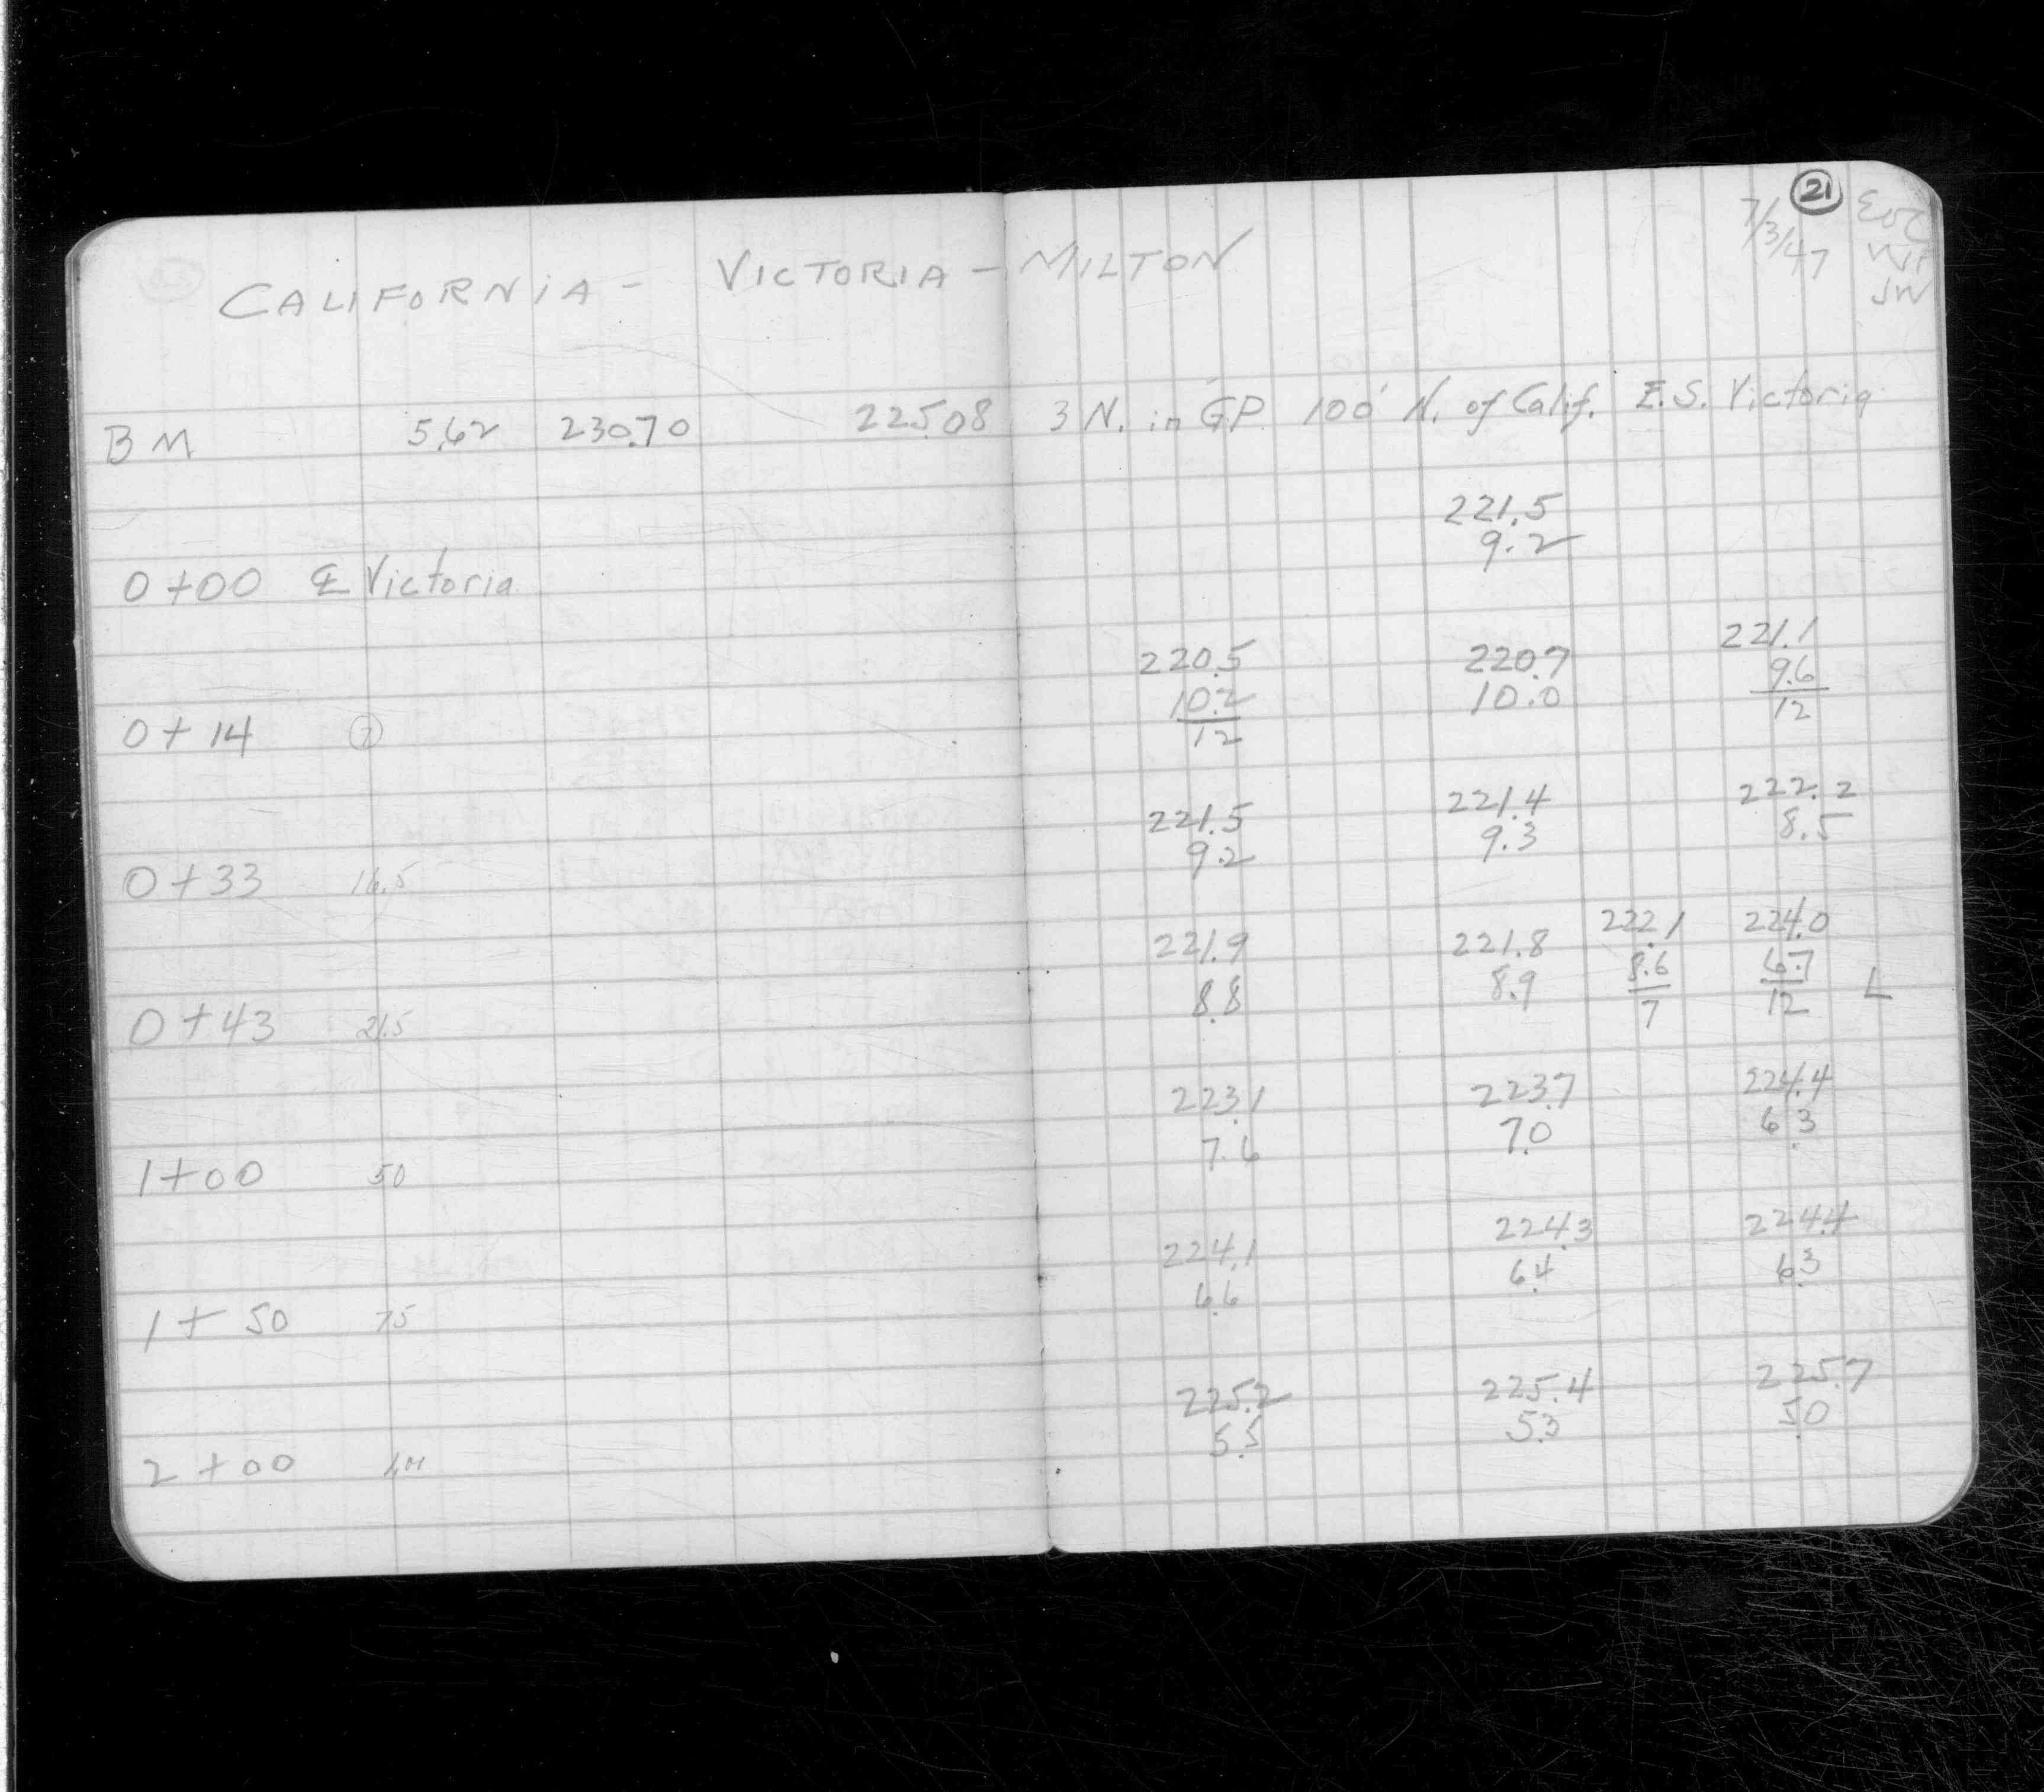 21
7/3/47 EOC
JW
CALIFORNIA - VICTORIA - MILTON
BM 5.62 230.70 225.08 3 N. in G.P. 100' N. of Calif. E.S. Victoria
221.5
9.2
0+00 ℄ Victoria
220.5 220.7 221.1
10.2 10.0 9.6
12 12
0+14 7
221.5 221.4 222.2
9.2 9.3 8.5
0+33 16.5
221.9 221.8 222.1 224.0
8.8 8.9 8.6 6.7 L
7 12
0+43 21.5
223.1 223.7 224.4
7.6 7.0 6.3
1+00 50
224.1 224.3 224.4
6.6 6.4 6.3
1+50 75
225.2 225.4 225.7
5.5 5.3 5.0
2+00